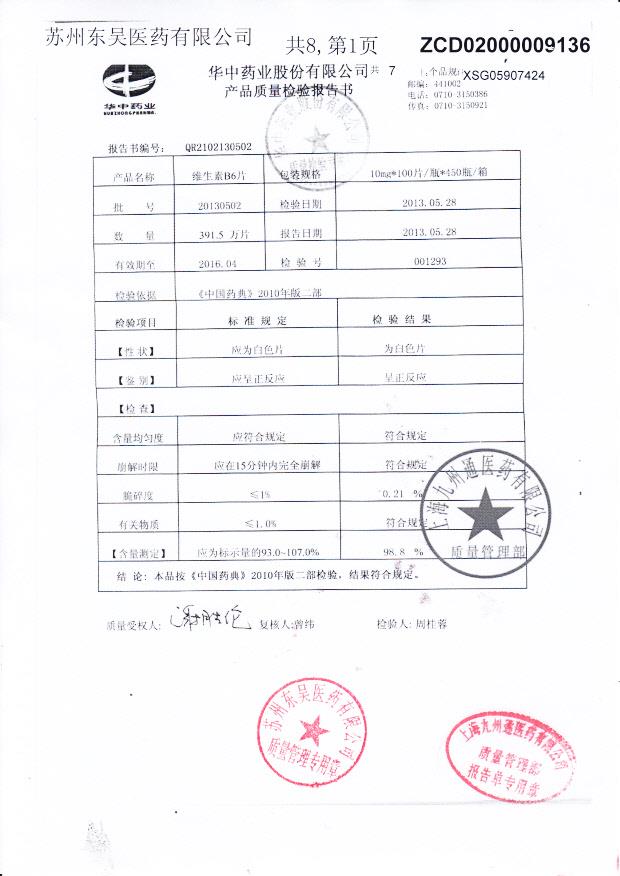 苏州东吴医药有限公司
共8,第1页
ZCD02000009136
华中药业股份有限公司
共 7
1,个品规
XSG05907424
产品质量检验报告书
邮编: 441002
电话: 0710-3150386
传真: 0710-3150921
华中药业
HUAZHONG PHARMA.
报告书编号: QR2102130502
产品名称 维生素B6片 包装规格 10mg*100片/瓶*450瓶/箱
批 号 20130502 检验日期 2013.05.28
数 量 391.5 万片 报告日期 2013.05.28
有效期至 2016.04 检 验 号 001293
检验依据 《中国药典》2010年版二部
检验项目 标 准 规 定 检 验 结 果
【性 状】 应为白色片 为白色片
【鉴 别】 应呈正反应 呈正反应
【检 查】
含量均匀度 应符合规定 符合规定
崩解时限 应在15分钟内完全崩解 符合规定
脆碎度 ≤1% 0.21 %
有关物质 ≤1.0% 符合规定
【含量测定】 应为标示量的93.0~107.0% 98.8 %
结 论: 本品按《中国药典》2010年版二部检验, 结果符合规定。
质量受权人: 复核人:曾纬 检验人: 周桂蓉
上海九州通医药有限公司
质量管理部
苏州东吴医药有限公司
质量管理专用章
上海九州通医药有限公司
质量管理部
报告单专用章